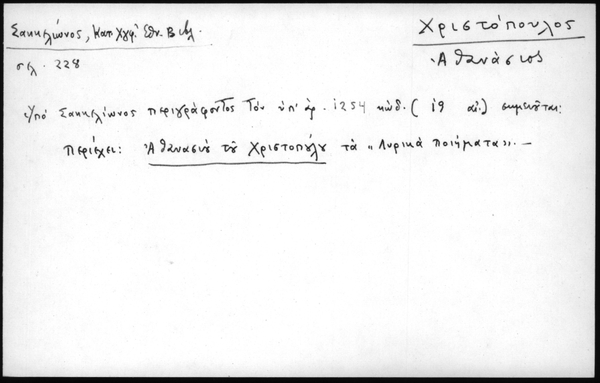 Σακκελίωνος, Κατ. Χγφ. Ἐθν. Βιβλ.
σελ. 228
Χριστόπουλος
Ἀθανάσιος
Ὑπό Σακκελίωνος περιγράφοντος τόν ὑπ' ἀρ. 1254 κώδ. (19 αἰ.) σημειοῦται:
Περιέχει: Ἀθανασίου τοῦ Χριστοπούλου τὰ «Λυρικά ποιήματα». —